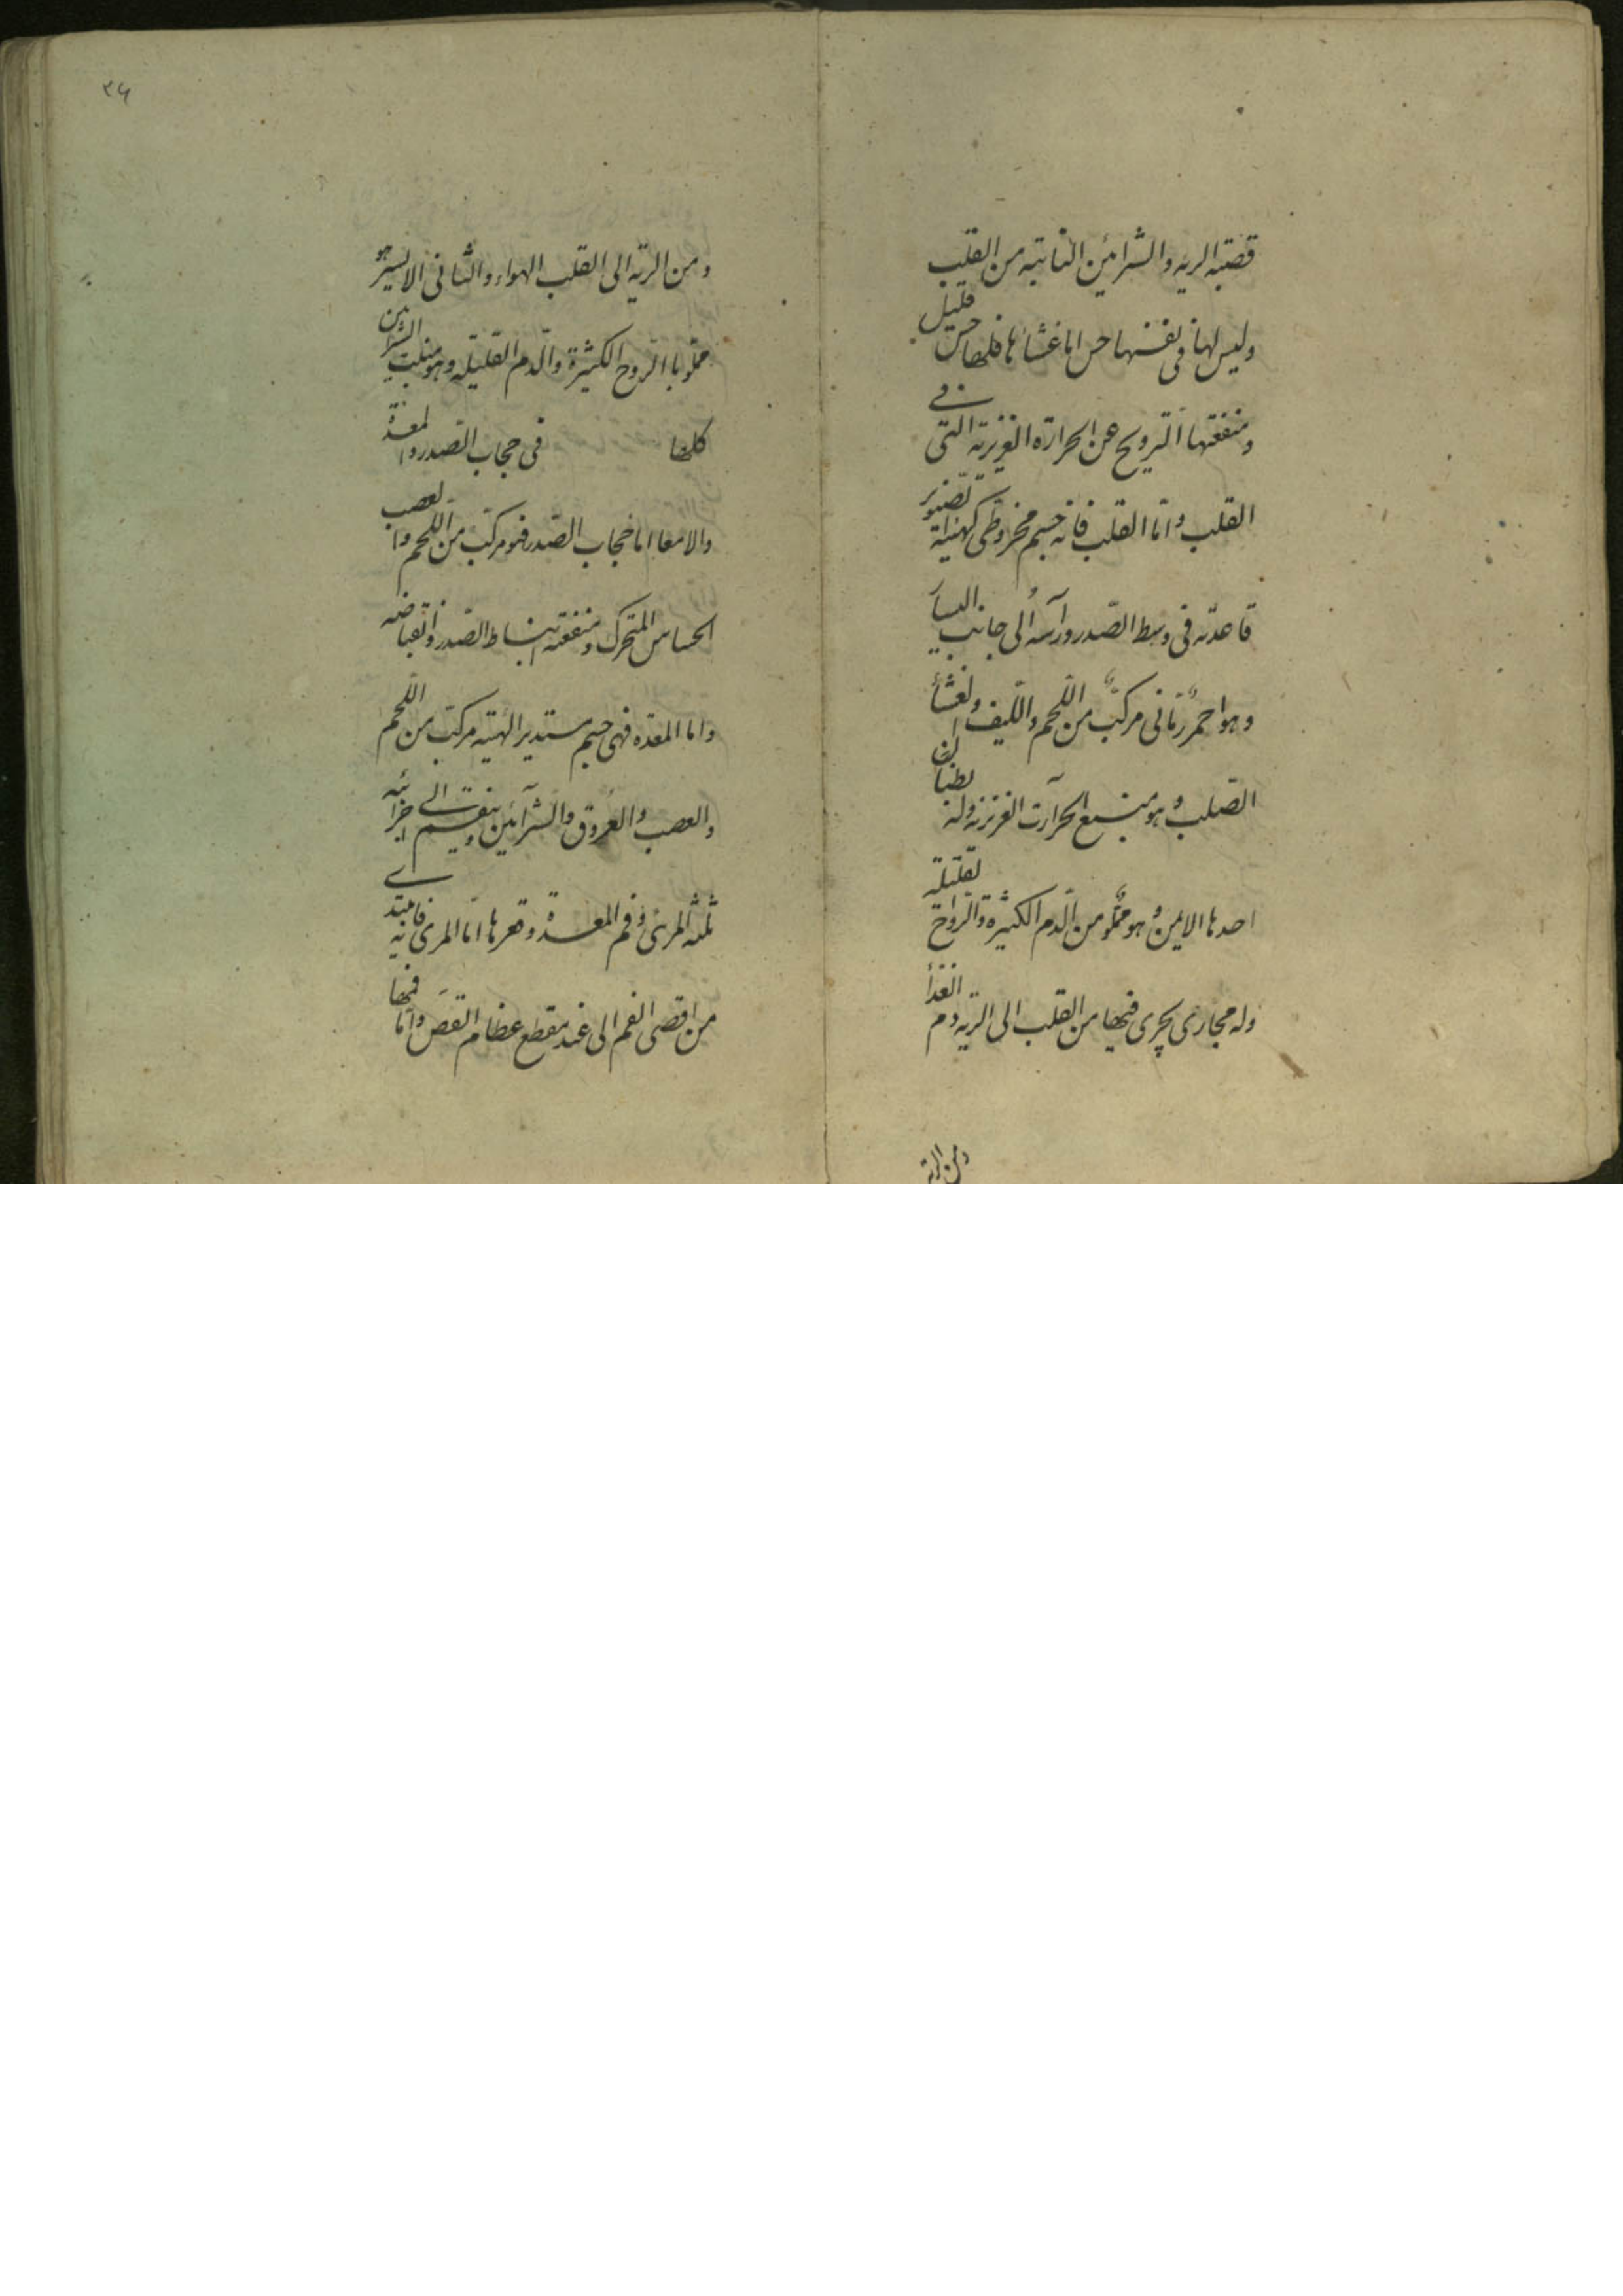 قصبه الريه والشرائين النابتة من القلب
وليس لها فى نفسها حس اما غشاها فلها حس قليل
ومنفعتها الترويح عن الحرارة الغزيزية التى فى
القلب واما القلب فانه جسم مخروطى كهيئة صنوبر
قاعدته فى وسط الصدر ورأسه الى جانب اليسار
وهو احمر رمانى مركب من اللحم والليف والغشأ
الصلب وهو منبع الحرآرت الغزيزية وله بطنان
احدها الايمن وهو مملو من الدم الكثيرة والروح القليلة
وله مجارى يجرى فيها من القلب الى الرية دم الغذأ
ومن الرية
٣٤
ومن الرية الى القلب الهواء والثانى الايسر هو
مملو باالروح الكثيرة والدم القليله وهو منبت الشرائين
كلها فى حجاب الصدر والمعدة
والامعا اما حجاب الصدر فهو مركب من اللحم والعصب
الحساس المتحرك ومنفعته انبساط الصدر وانقباضه
واما المعده فهى جسم مستدير الهيئة مركب من اللحم
والعصب والعروق والشرآئين وينقسم الى اجزائه
ثلثه المرئ وفم المعدة وقعرها اما المرى فابتدايه
من اقصى الفم الى عند مقطع عظام القص واما فمها